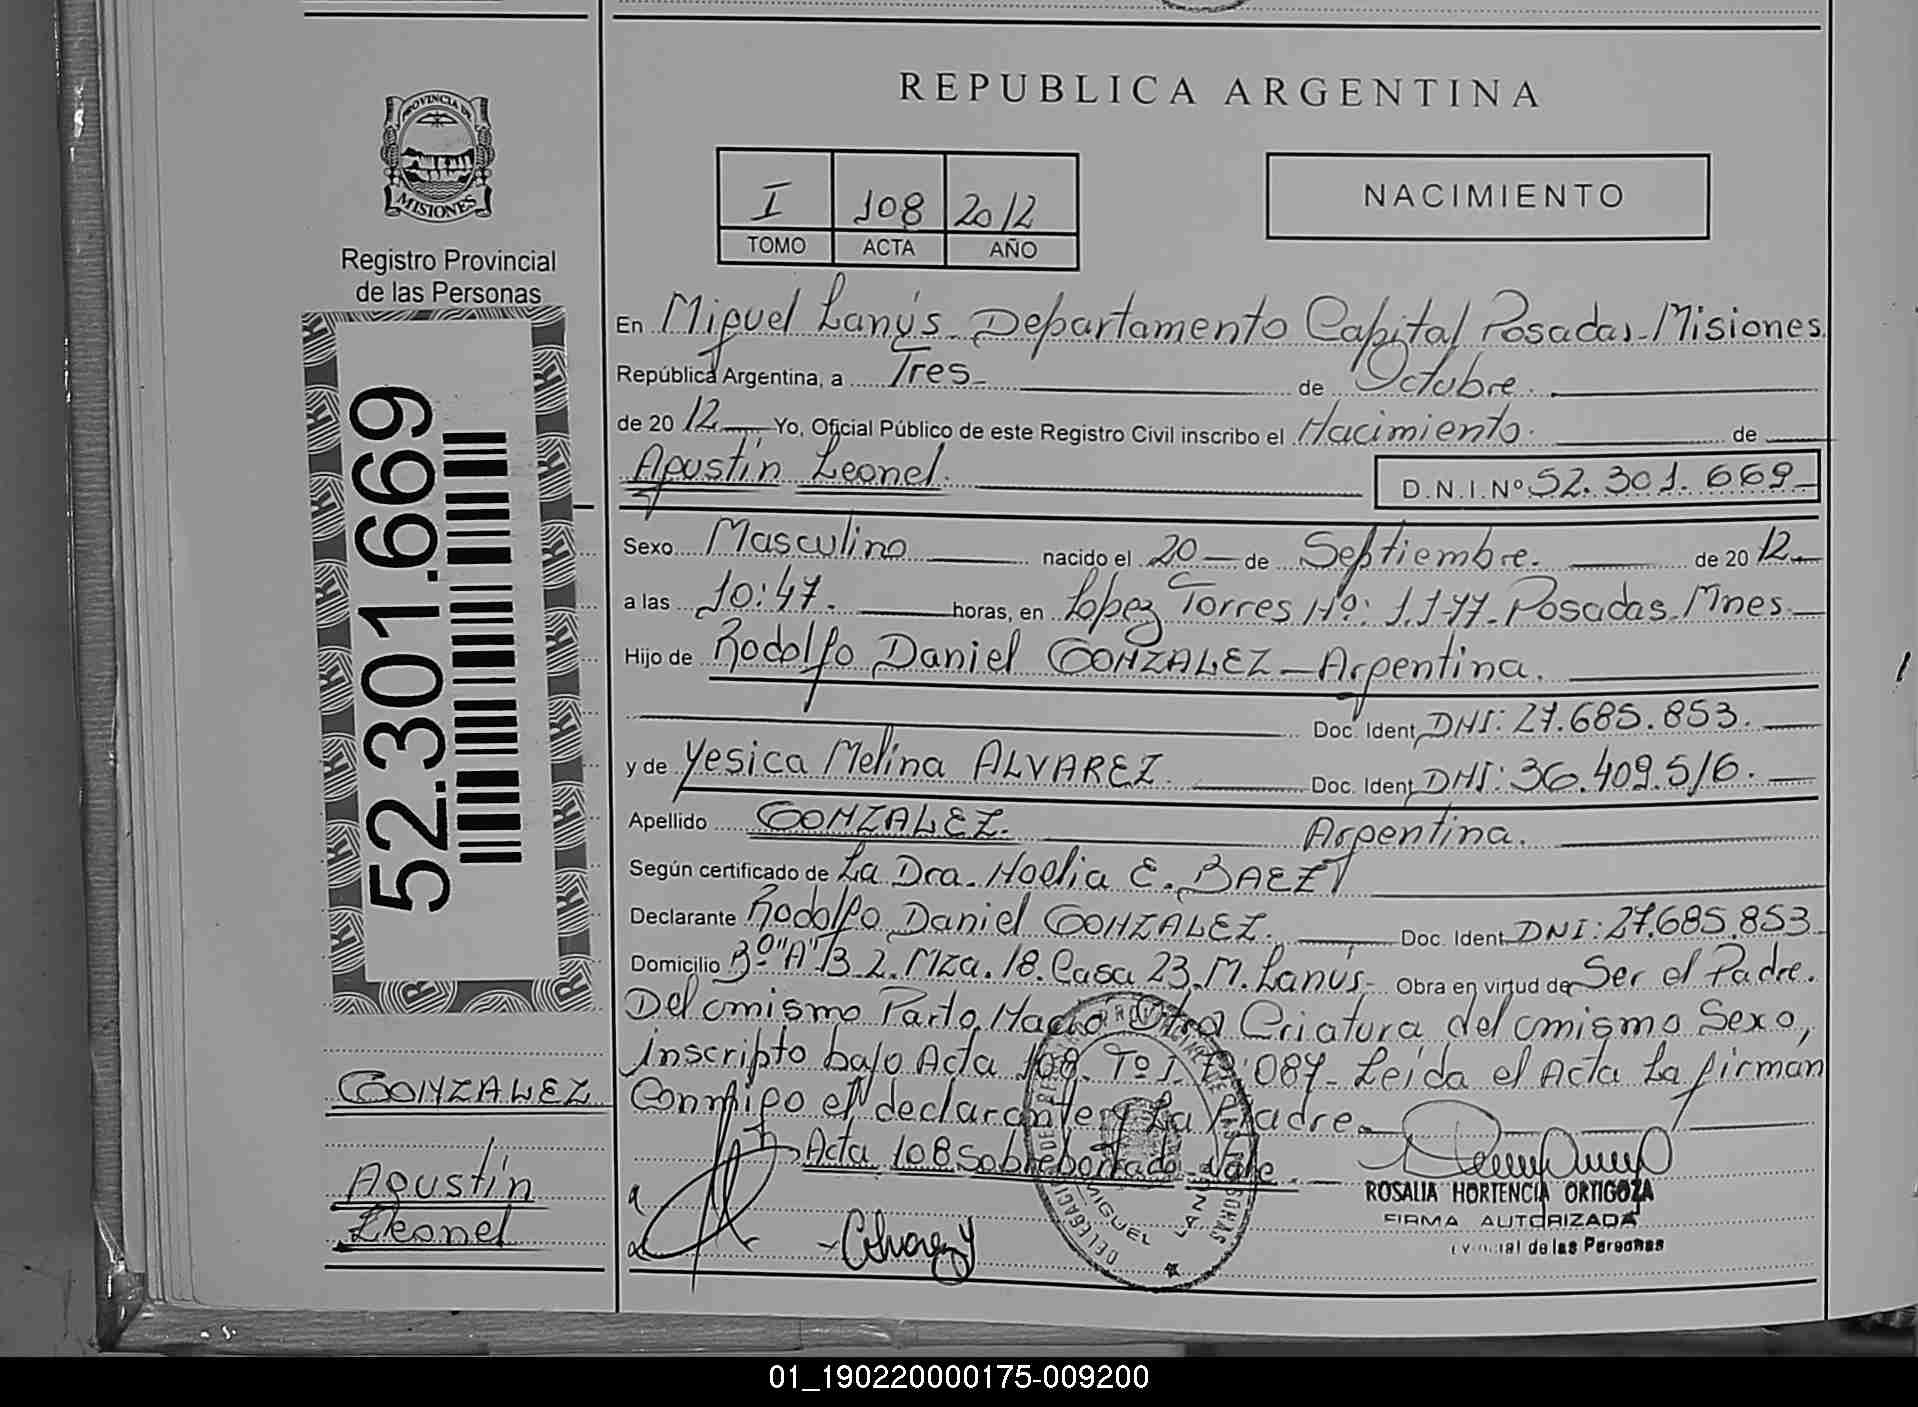 REPUBLICA ARGENTINA
PROVINCIA DE
MISIONES
Registro Provincial
de las Personas
I 108 2012
TOMO ACTA AÑO
NACIMIENTO
52.301.669
En Miguel Lanús - Departamento Capital Posadas - Misiones
República Argentina, a Tres - de Octubre.
de 2012 Yo, Oficial Público de este Registro Civil inscribo el Nacimiento. de
Agustín Leonel. D.N.I.Nº 52.301.669
Sexo Masculino nacido el 20 de Septiembre. de 2012
a las 10:47. horas, en Lopez Torres Nº: 1.177. Posadas. Mnes.
Hijo de Rodolfo Daniel GONZALEZ - Argentina.
Doc. Ident. DNI: 27.685.853.
y de Yesica Melina ALVAREZ. Doc. Ident. DNI: 36.409.516.
Apellido GONZALEZ. Argentina.
Según certificado de La Dra. Noelia E. BAEZ
Declarante Rodolfo Daniel GONZALEZ. Doc. Ident. DNI: 27.685.853
Domicilio Bº "A" 3 2. Mza. 18. Casa 23. M. Lanús - Obra en virtud de Ser el Padre.
Del mismo Parto Nació Otra Criatura del mismo Sexo,
inscripto bajo Acta 108. Tº I. Fº 087 - Leída el Acta La firman
Conmigo el declarante y La Madre.
Acta 108 Sobrebortado Vale.
GONZALEZ
Agustín
Leonel
MIGUEL LANUS
ROSALIA HORTENCIA ORTIGOZA
FIRMA AUTORIZADA
de las Personas
01_190220000175-009200